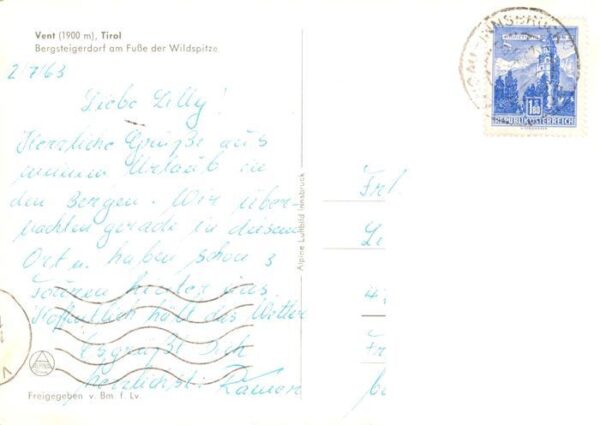 Vent (1900 m), Tirol
Bergsteigerdorf am Fuße der Wildspitze
2/7/63
Liebe Lilly!
Herzliche Grüße aus
meinem Urlaub in
den Bergen. Wir über-
nachten gerade in diesem
Ort u. haben schon 3
Touren hinter uns.
Hoffentlich hält das Wetter
Es grüßt Dich
herzlichst
Freigegeben v. Bm. f. Lv.
Alpine Luftbild Innsbruck
INNSBRUCK
1.80
REPUBLIK ÖSTERREICH
Frl
Li
Fr